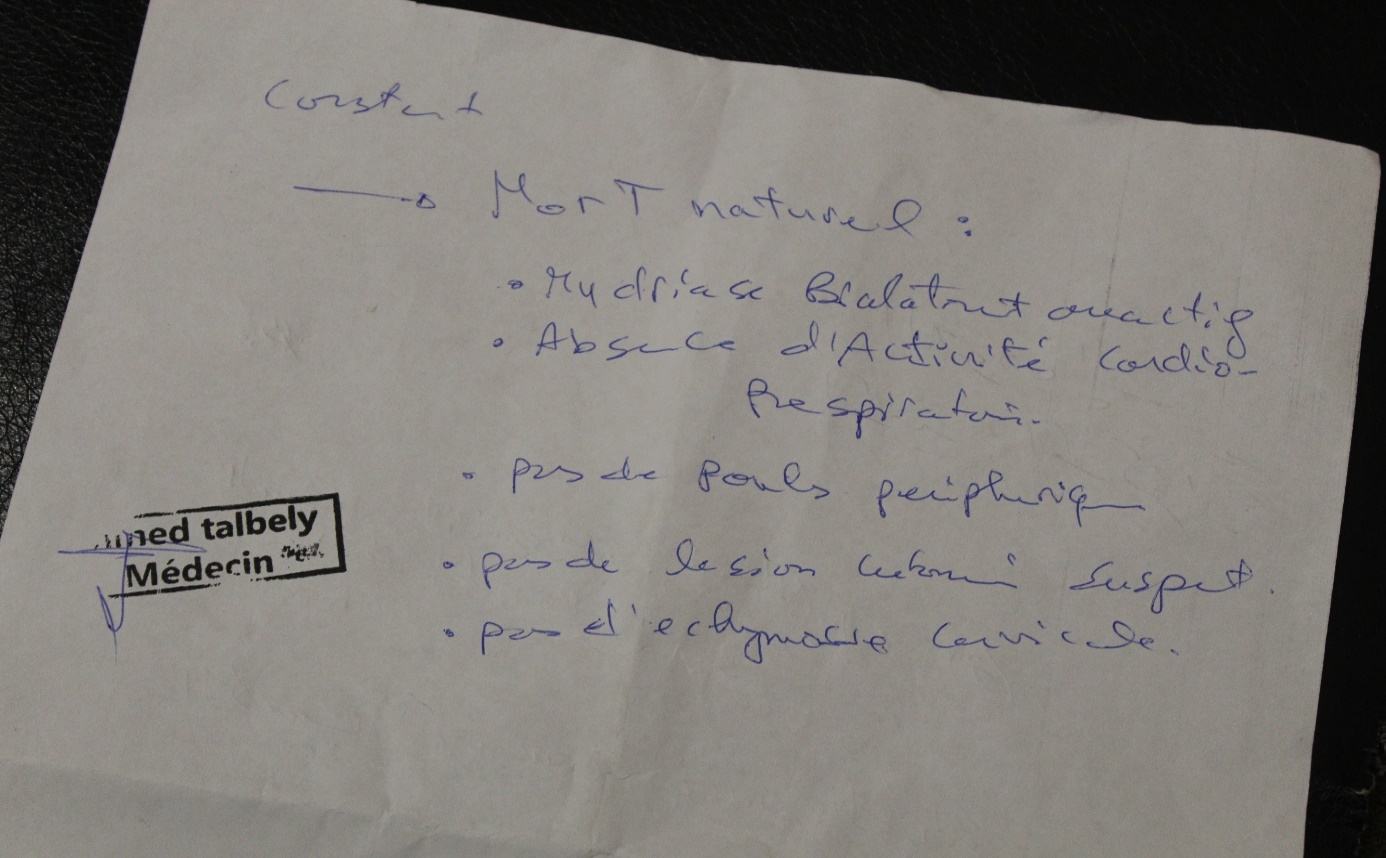 Constat
→ MorT naturel :
• Mydriase Bilatérat
• Absence d'Activité Cardio-
Respiratoi.
• pas de Pouls periphériq
• pas de lesion suspect.
• pas d'echymose Cervicale.
med talbely
Médecin